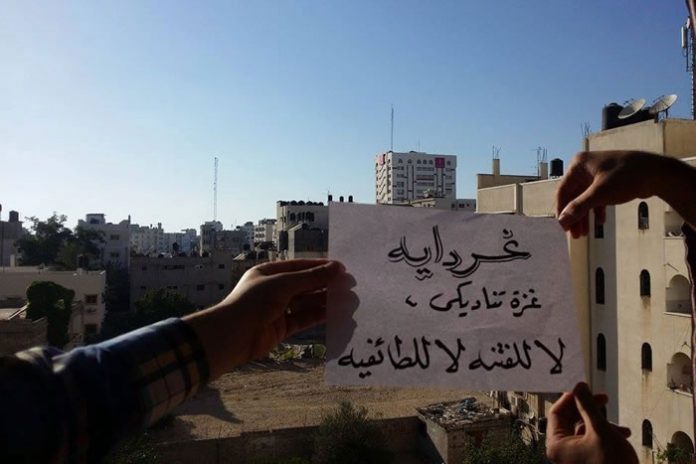 غردايه
غزة تناديكي ،
لا للفتنه لا للطائفيه